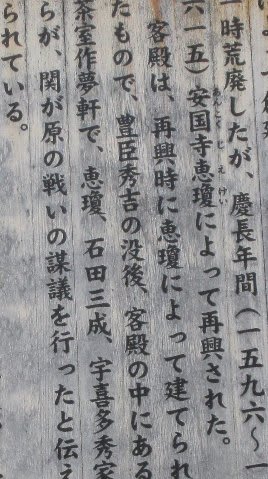 一時荒廃したが、慶長年間（一五九六〜一
六一五）安国寺恵瓊によって再興された。
あんこくじえけい
客殿は、再興時に恵瓊によって建てられ
たもので、豊臣秀吉の没後、客殿の中にある
茶室作夢軒で、恵瓊、石田三成、宇喜多秀家
らが、関が原の戦いの謀議を行ったと伝え
られている。